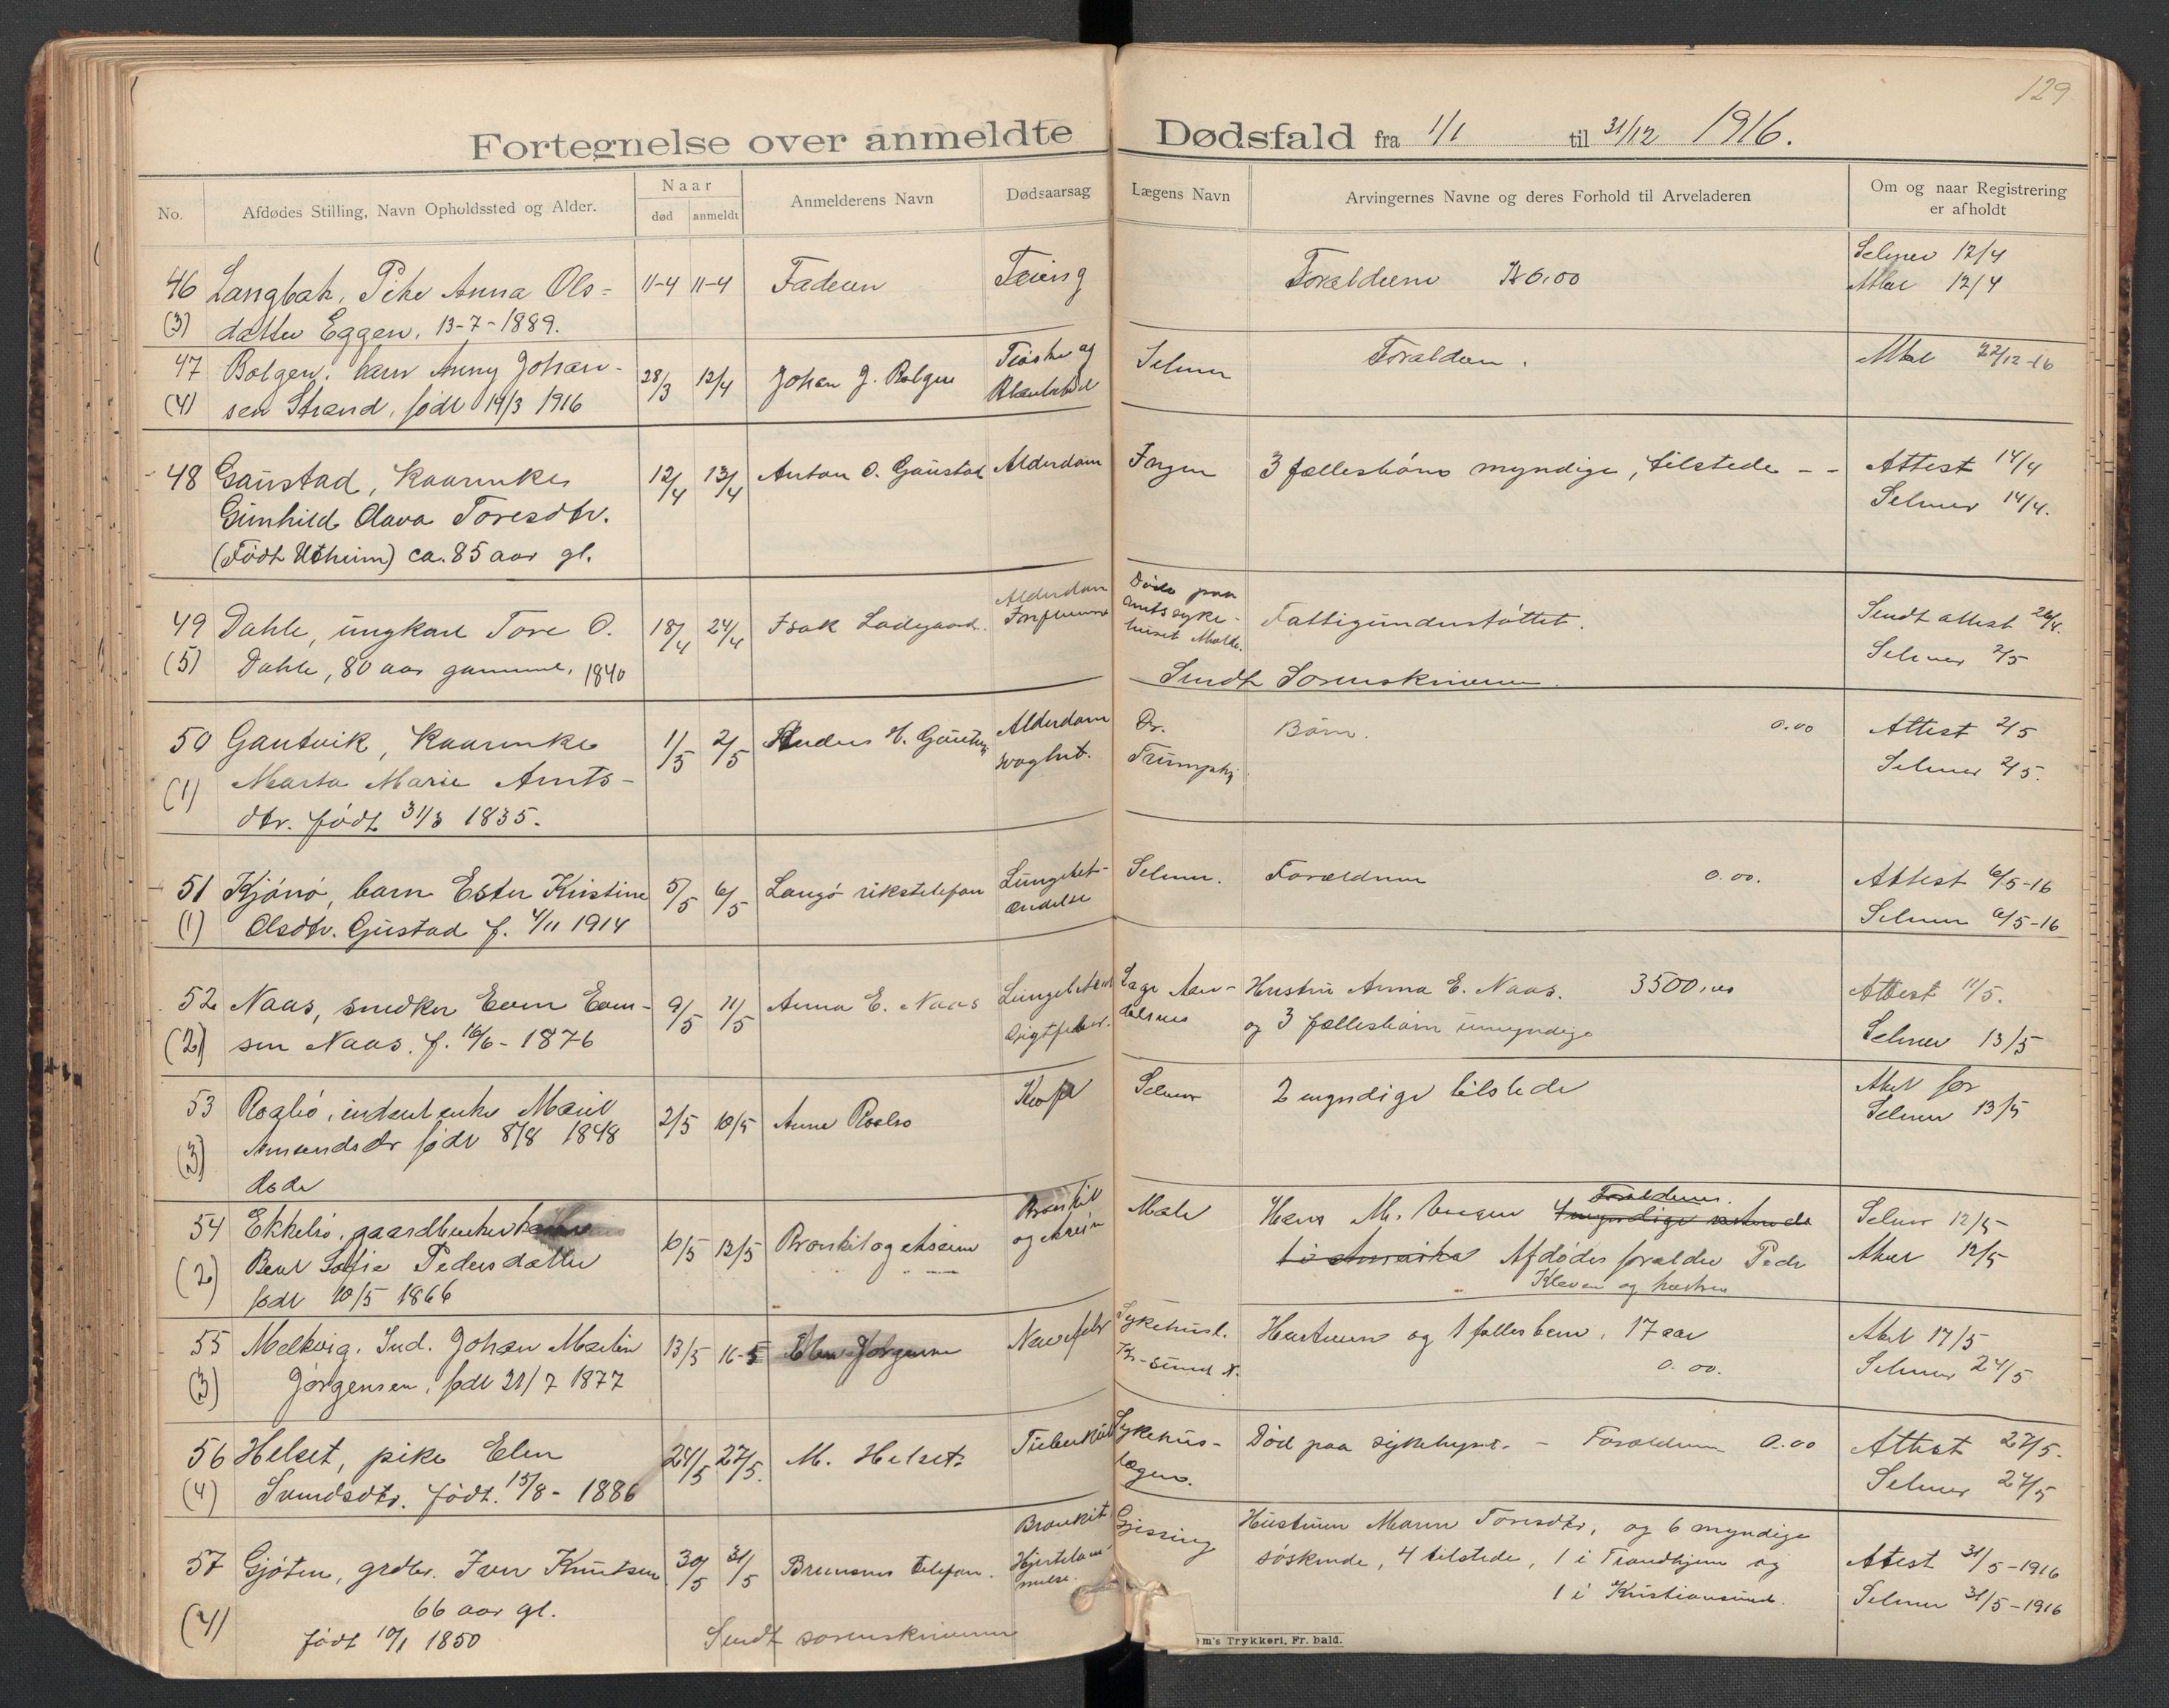 129
Fortegnelse over anmeldte Dødsfald fra 1/1 til 31/12 1916.
No. Afdødes Stilling, Navn Opholdssted og Alder. Naar død anmeldt Anmelderens Navn Dødsaarsag Lægens Navn Arvingernes Navne og deres Forhold til Arveladeren Om og naar Registrering er afholdt
46 Langbak, Pike Anna Ols- 11-4 11-4 Faderen Tæring Forældrene 0.00 Selmer 12/4
(3) datter Eggen, 13-7-1889. 12/4
47 Bolgen, barn Anny Johan- 28/3 12/4 Johan J. Bolgen Trøske og Selmer Forældren. 22/12-16
(4) sen Strand, født 19/3 1916
48 Gaustad, Kaarenke 12/4 13/4 Anton O. Gaustad Alderdom 3 fællesbörn myndige, tilstede - - Attest 14/4
Gunhild Olava Toresdtr. Selmer 14/4.
(Født Utheim) ca. 85 aar gl.
49 Dahle, ungkarl Tore O. 18/4 24/4 Isak Ladegaard. Alderdom Døde paa Fattigunderstøttet. Sendt attest 26/4.
(5) Dahle, 80 aar gammel, 1840 amtssyke- huset Molde. Selmer 2/5
Sendt Sorenskriveren.
50 Gautvik, Kaarenke 1/5 2/5 Alderdom Dr. Börn. 0.00 Attest 2/5
(1) Marta Marie Arnts- Selmer 2/5.
dtr. født 31/3 1835.
51 Kjönö, barn Ester Kristine 5/5 6/5 Langö rikstelefon Lungebet- Selmer. Forældrene 0.00. Attest 6/5-16
(1) Olsdtr. Gustad f. 4/11 1914 ændelse Selmer 6/5-16
52 Naas, snedker Even Even- 9/5 11/5 Anna E. Naas Hustru Anna E. Naas. 3500,00 Attest 11/5.
(2) sen Naas. f. 16/6-1876 Gigtfeber. og 3 fællesbörn umyndige Selmer 13/5
53 2/5 10/5 Anne Selmer 2 myndige tilstede for
(3) født 8/8 1848 Selmer 13/5
54 Ekkelsö, gaardbruker 10/5 12/5 Bronkit Forældrene. Selmer 12/5
(2) Berit Sofie Pedersdatter Afdødes forældre Peder 12/5
født 10/5 1866 Kleven og hustru
55 Melkvig. Ind. Johan Martin 13/5 16-5 Jörgensen Sykehusl. Hustruen og 1 fællesbarn, 17 aar 17/5
(3) Jörgensen, født 21/7 1877 Kr-sund N. 0.00. Selmer 24/5
56 Helset, pike Elen 24/5 27/5. M. Helset Sykehus- Død paa sykehuset. - Forældrene 0.00 Attest 27/5.
(4) Svendsdtr. født. 15/8-1886 lægen. Selmer 27/5
57 Gjöten, grdbr. Iver Knutsen 30/5 31/5 Bremsnes telefon. Bronkit, Gjessing Hustruen Maren Toresdtr, og 6 myndige
Hjertelam- melse. söskende, 4 tilstede, 1 i Trondhjem og Attest 31/5-1916
(4) 66 aar gl. 1 i Kristiansund. Selmer 31/5-1916
født 10/1 1850 Sendt sorenskriveren
em's Trykkeri, Fr. hald.